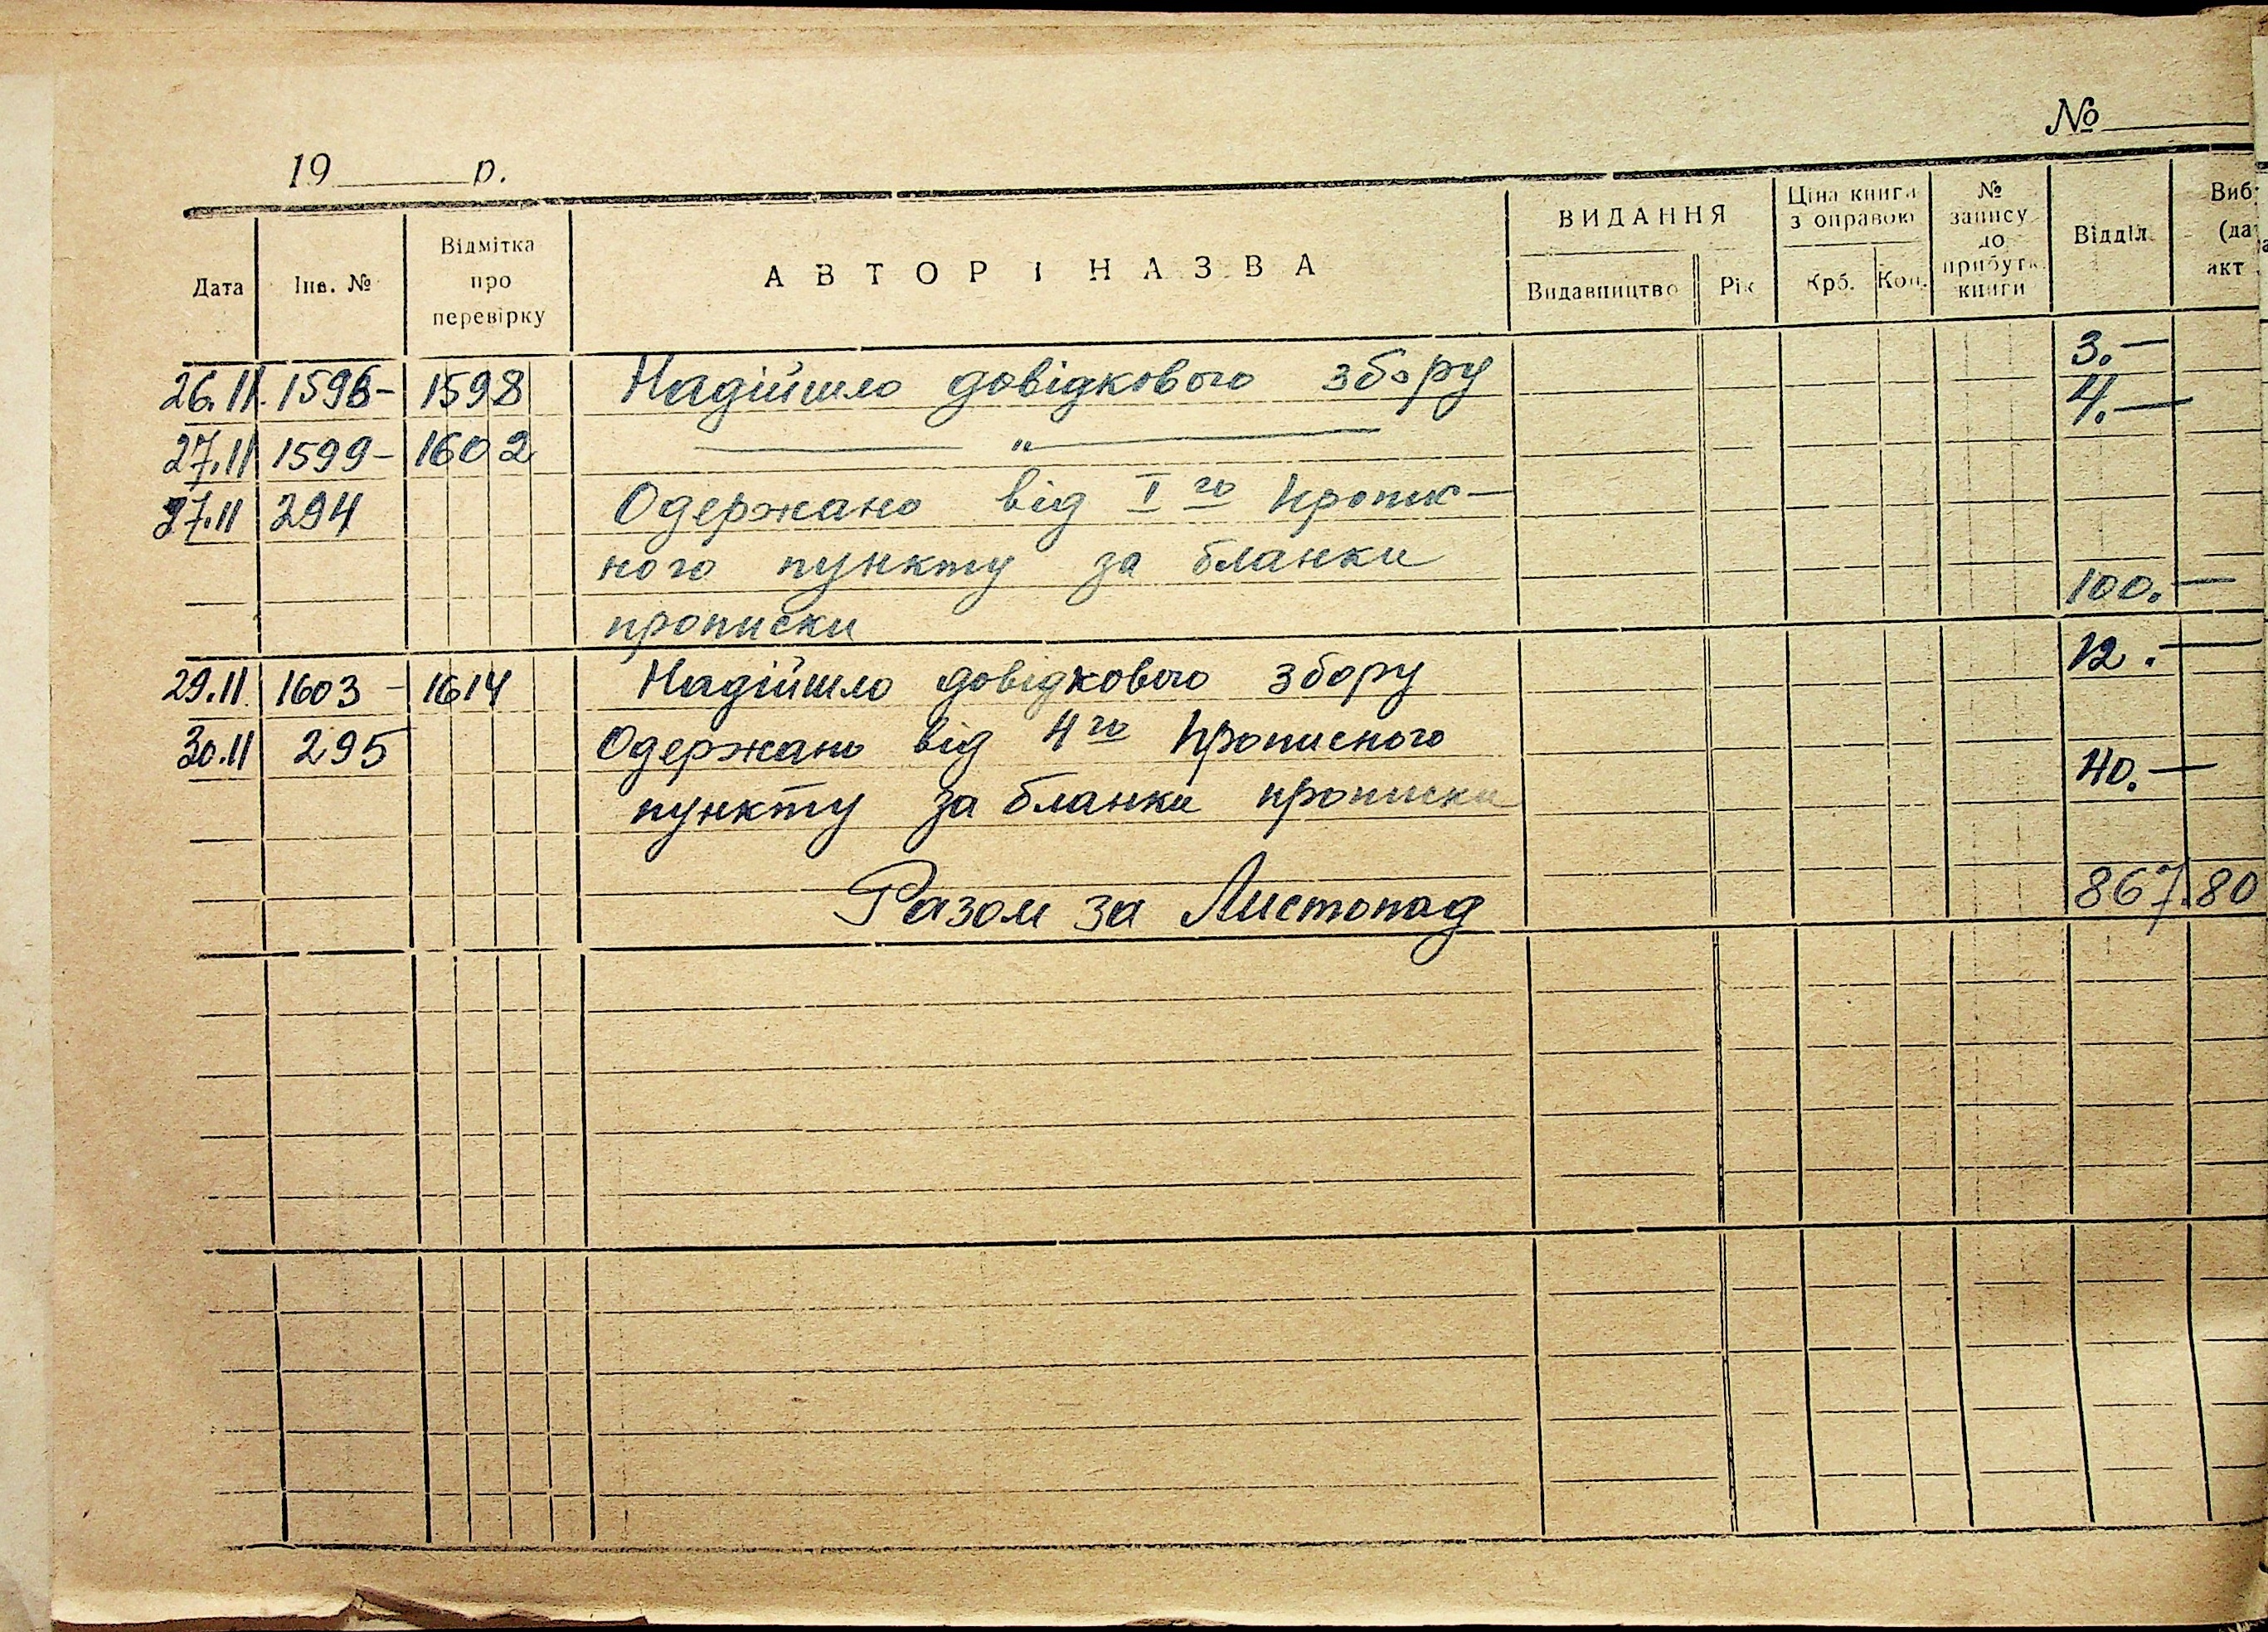 №
19 р.
Дата Інв. № Відмітка про перевірку АВТОР І НАЗВА ВИДАННЯ Видавництво Рік Ціна книги з оправою Крб. Коп. № запису до прибутк. книги Відділ Виб (да акт
26.11. 1596- 1598 Надійшло довідкового збору 3.—
27.11 1599- 1602 — " — 4.—
27.11 294 Одержано від I го
ного пункту за бланки
прописки 100.—
29.11 1603 - 1614 Надійшло довідкового збору 12.—
30.11 295 Одержано від 4 го Прописного
пункту за бланки прописки 40.—
Разом за Листопад 867.80